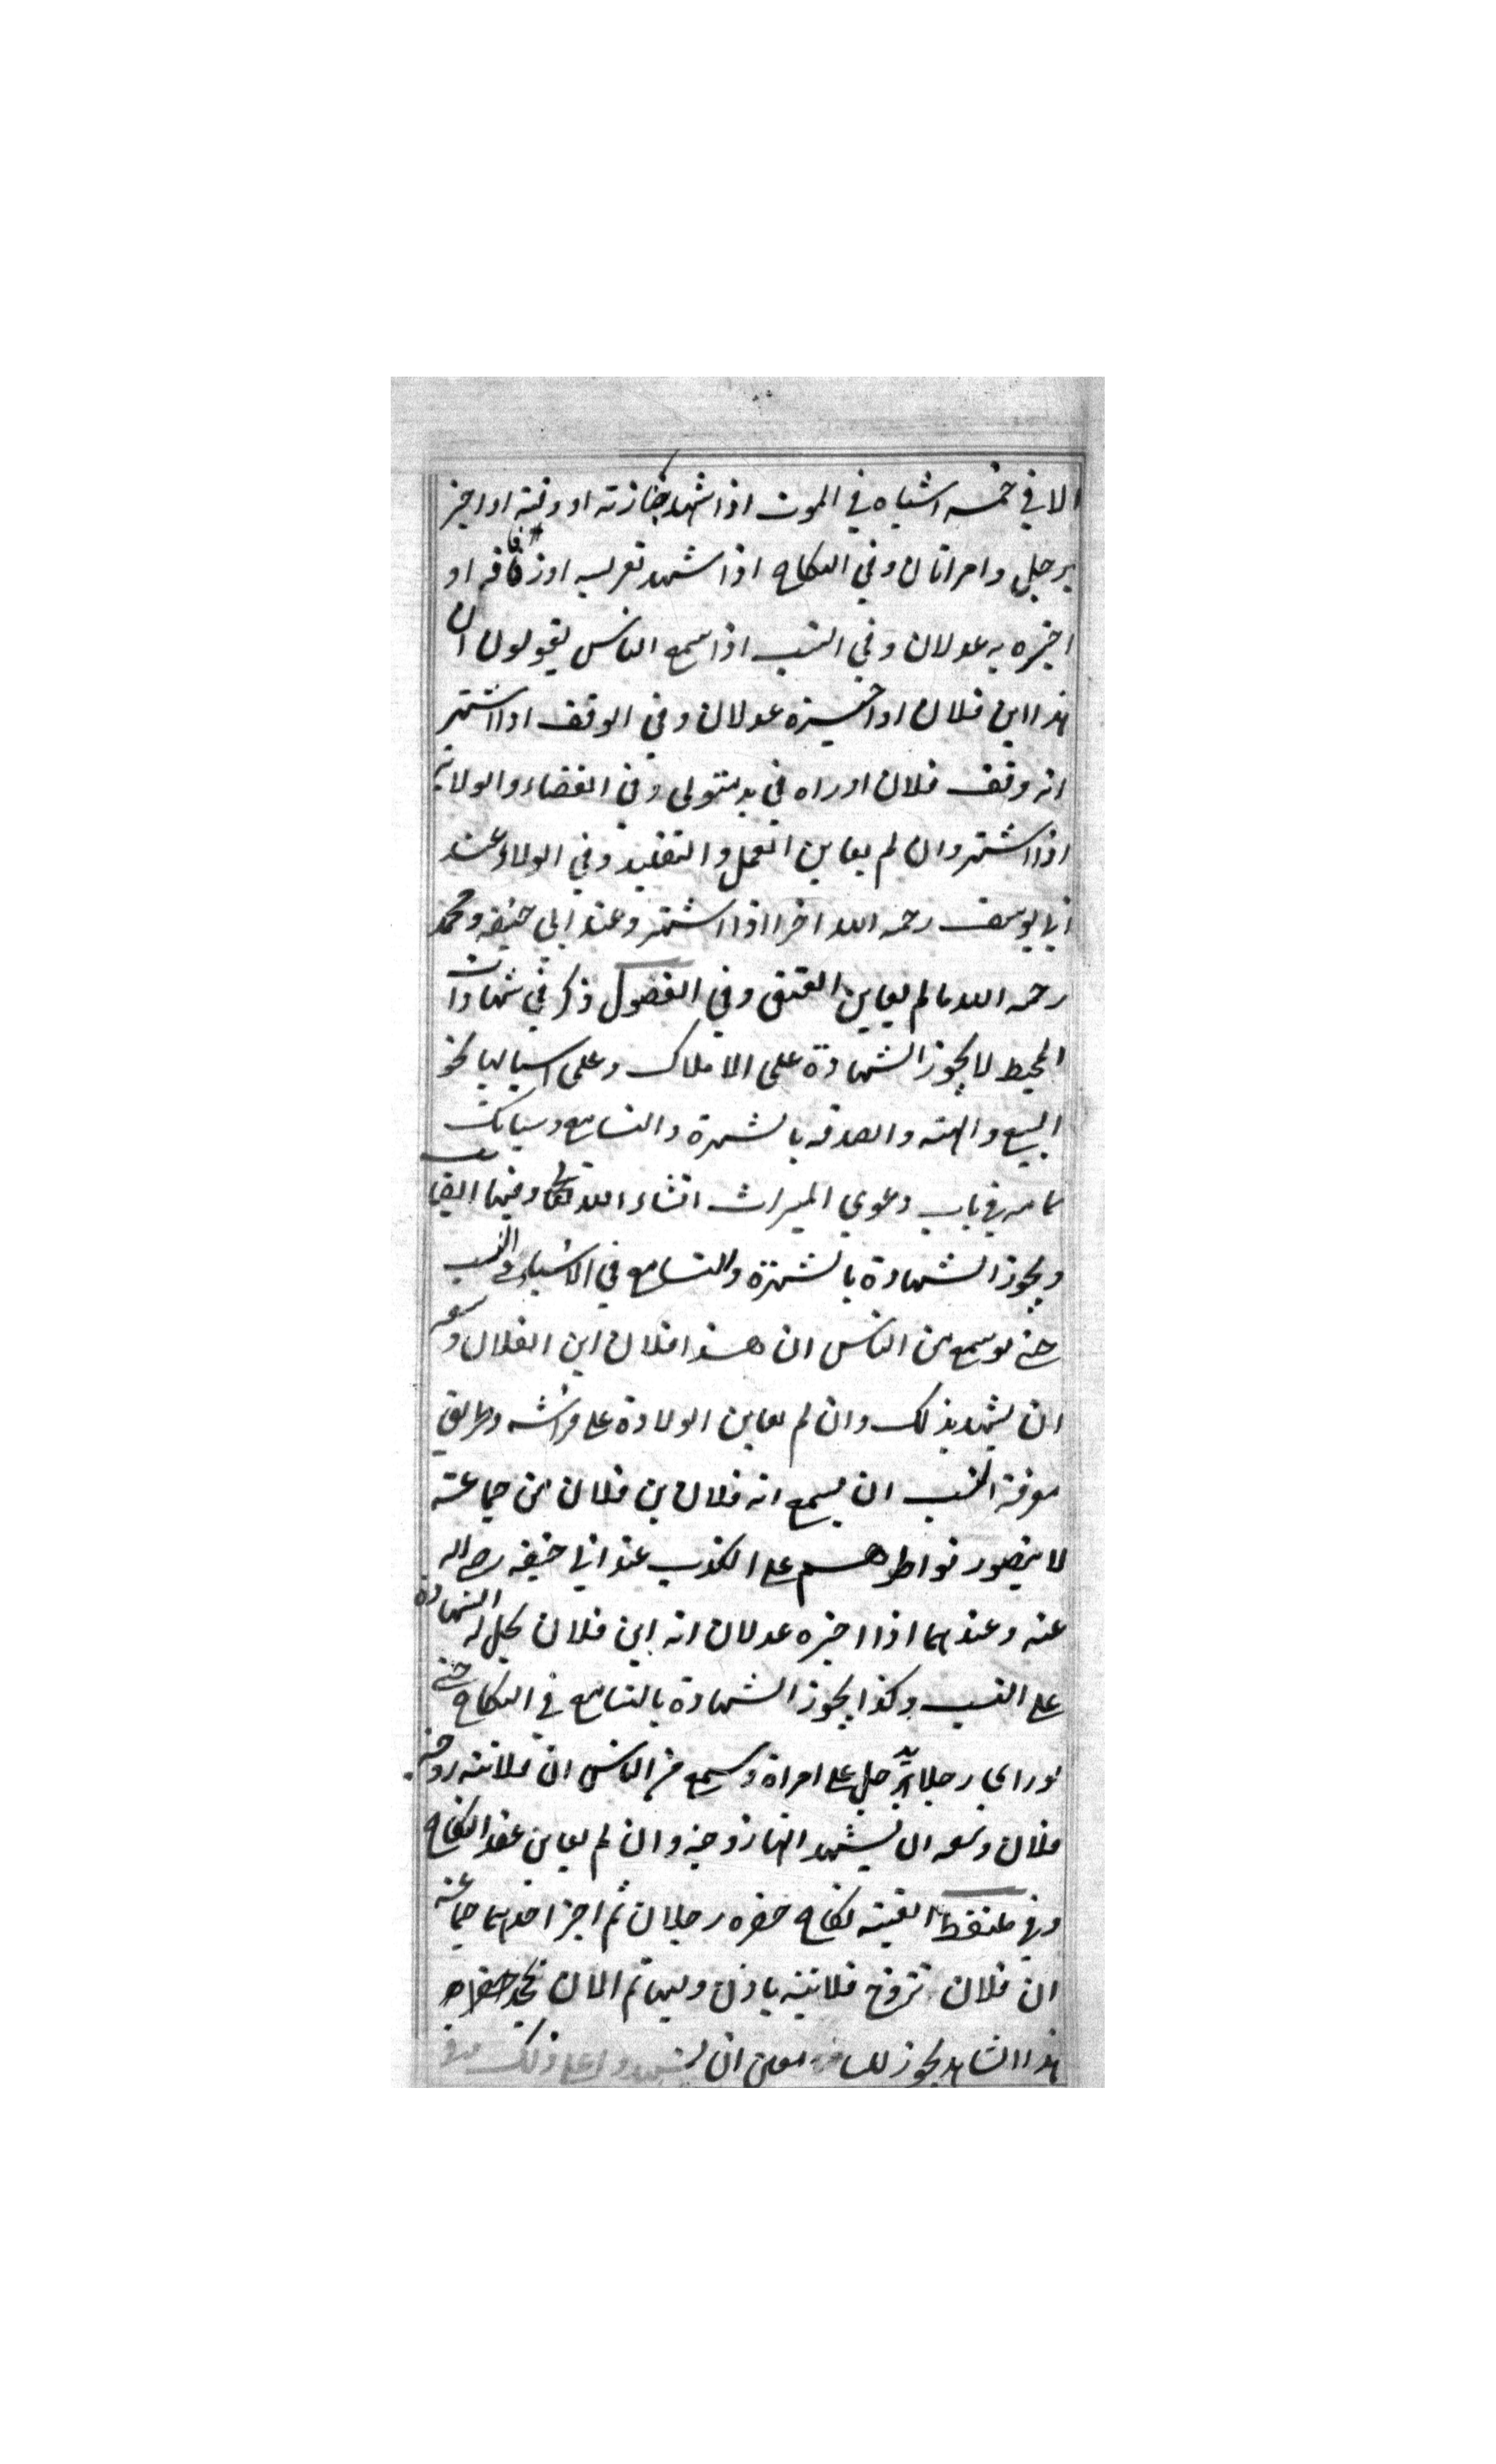 الا في خمسه اشياء في الموت اذا شهد جنازته او دفنه او اخبر
به رجل وامراتان وفي النكاح اذا شهد تعريسه او زفافه او
اخبره به عدلان وفي النسب اذا سمع الناس يقولون ان
هذا ابن فلان او اخبره عدلان وفي الوقف اذا اشتهر
انه وقف فلان او راه في يد متولى وفي القضاء والولاية
اذا اشتهر وان لم يعاين العمل والتقليد وفي الولاء عند
ابي يوسف رحمه الله اخرا اذا اشتهر وعند ابي حنيفه ومحمد
رحمه الله ما لم يعاين العتق وفي الفصول ذكر في شهادات
المحيط لا يجوز الشهادة على الاملاك وعلى اسبابها نحو
البيع والهبه والصدقه بالشهرة والتسامع وسياتك
تمامه في باب دعوي الميراث انشاء الله تعالى وفيها ايضا
ويجوز الشهادة بالشهرة والتسامع في الاشياء في النسب
حتى لو سمع من الناس ان هذا فلان ابن الفلان وسعه
ان يشهد بذلك وان لم يعاين الولادة على فراشه وطريق
معرفة النسب ان يسمع انه فلان بن فلان من جماعته
لا يتصور تواطوهم على الكذب عند ابي حنيفه رضي الله
عنه وعندهما اذا اخبره عدلان انه ابن فلان يحل له الشهادة
على النسب وكذا يجوز الشهادة بالتسامع في النكاح حتى
لو راي رجلا يدخل على امراة وسمع من الناس ان فلانته زوجة
فلان وسعه ان يشهد انها زوجته وان لم يعاين عقد النكاح
وفي ملتقط القنيه نكاح حضره رجلان ثم اخبر احدهما جماعة
ان فلان تزوج فلانته باذن وليها ثم الان يجحد
هذا الشاهد يجوز ان يشهدوا على ذلك